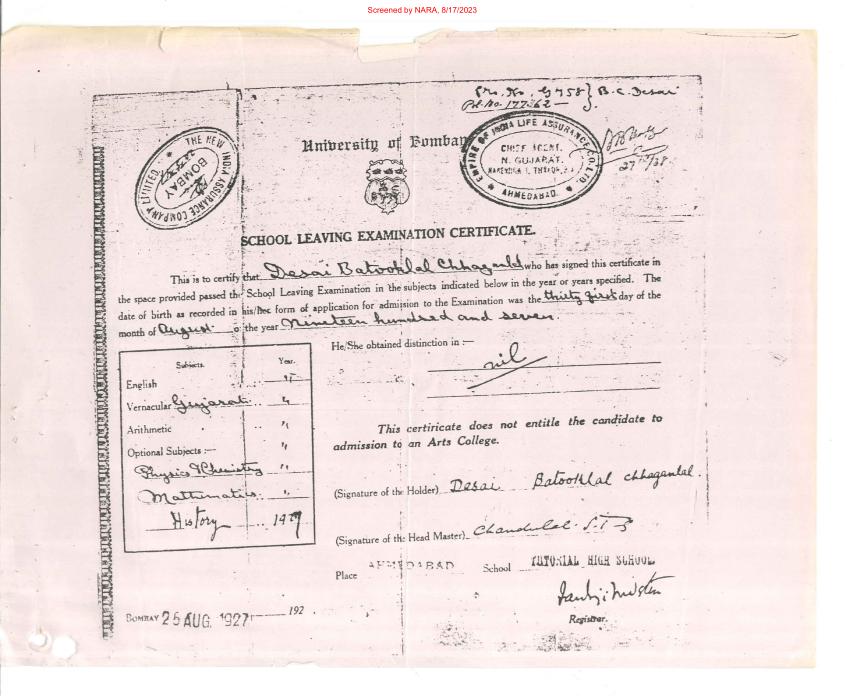 Screened by NARA, 8/17/2023
Pro. No. G 758 } B. C. Desai
Pol. No. 177362 —
University of Bombay
THE NEW INDIA ASSURANCE COMPANY LIMITED.
BOMBAY
EMPIRE OF INDIA LIFE ASSURANCE CO. LTD.
CHIEF AGENT.
N. GUJARAT.
AHMEDABAD.
SCHOOL LEAVING EXAMINATION CERTIFICATE.
This is to certify that Desai Batooklal Chhaganlal who has signed this certificate in
the space provided passed the School Leaving Examination in the subjects indicated below in the year or years specified. The
date of birth as recorded in his/her form of application for admission to the Examination was the thirty first day of the
month of August of the year Nineteen hundred and seven.
He/She obtained distinction in :—
nil
Subjects. Year.
English "
Vernacular Gujarati "
Arithmetic "
Optional Subjects :— "
Physics & Chemistry "
Mathematics "
History 1927
This certificate does not entitle the candidate to
admission to an Arts College.
(Signature of the Holder) Desai Batooklal Chhaganlal.
(Signature of the Head Master) Chandulal
Place AHMEDABAD School TUTORIAL HIGH SCHOOL
Registrar.
BOMBAY 25 AUG. 1927 192 .